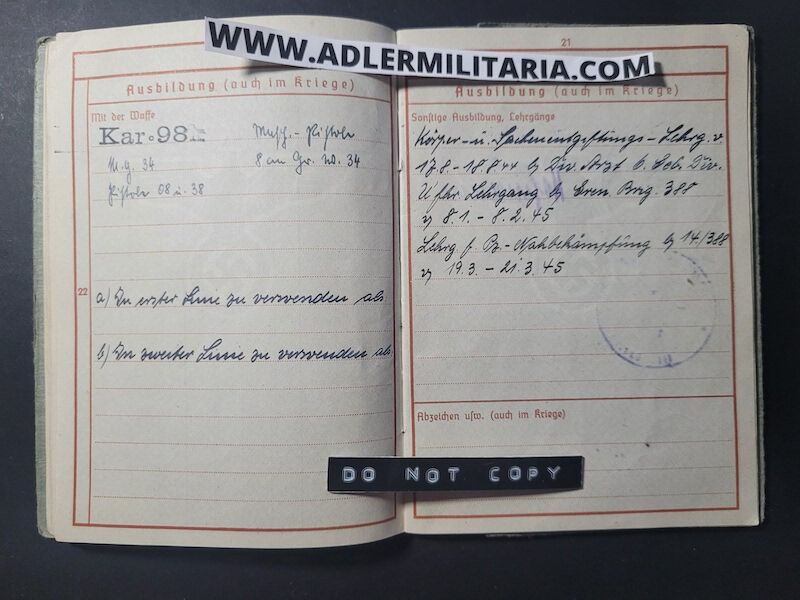 WWW.ADLERMILITARIA.COM
Ausbildung (auch im Kriege)
Mit der Waffe
Kar. 98k
M.G. 34
Pistole 08 u. 38
Masch.-Pistole
22
a) In erster Linie zu verwenden als
b) In zweiter Linie zu verwenden als
21
Ausbildung (auch im Kriege)
Sonstige Ausbildung, Lehrgänge
Körper- u. Sachenentgiftungs-Lehrg. v.
17.8. - 18.8.44 b. Div. Arzt 6. Geb. Div.
Uffhr. Lehrgang b. Gren. Brig. 388
v. 8.1. - 8.2.45
Lehrg. f. Pz.-Nahbekämpfung b. 14/388
v. 19.3. - 21.3.45
Abzeichen usw. (auch im Kriege)
DO NOT COPY